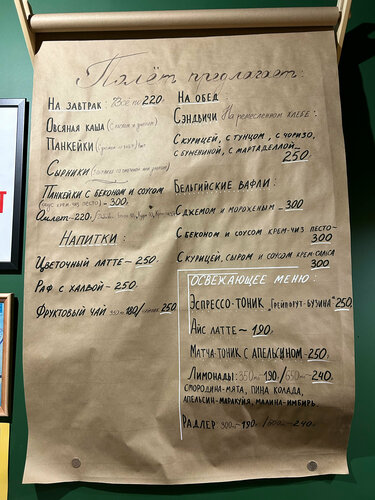 Полёт предлагает:
На завтрак: Всё по 220.
Овсяная каша
Панкейки
Сырники
Панкейки с беконом и соусом
— 300
Омлет - 220.
Напитки:
Цветочный латте - 250.
Раф с халвой - 250.
Фруктовый чай 350 мл 180/ 250
На обед:
Сэндвичи На ремесленном хлебе:
С курицей, с тунцом, с чоризо,
с бужениной, с мартаделлой
250
Бельгийские вафли:
С джемом и мороженым — 300
С беконом и соусом крем-чиз песто -
300
С курицей, сыром и соком крем-сальса
300
Освежающее меню:
Эспрессо-тоник „Грейпфрут-бузина" 250
Айс латте ~ 190.
Матча-тоник с апельсином - 250.
Лимонады: 350мл - 190 / 650мл - 240.
смородина-мята, пина колада,
апельсин-маракуйя, малина-имбирь.
Радлер: 300мл - 190 / 600мл - 240.